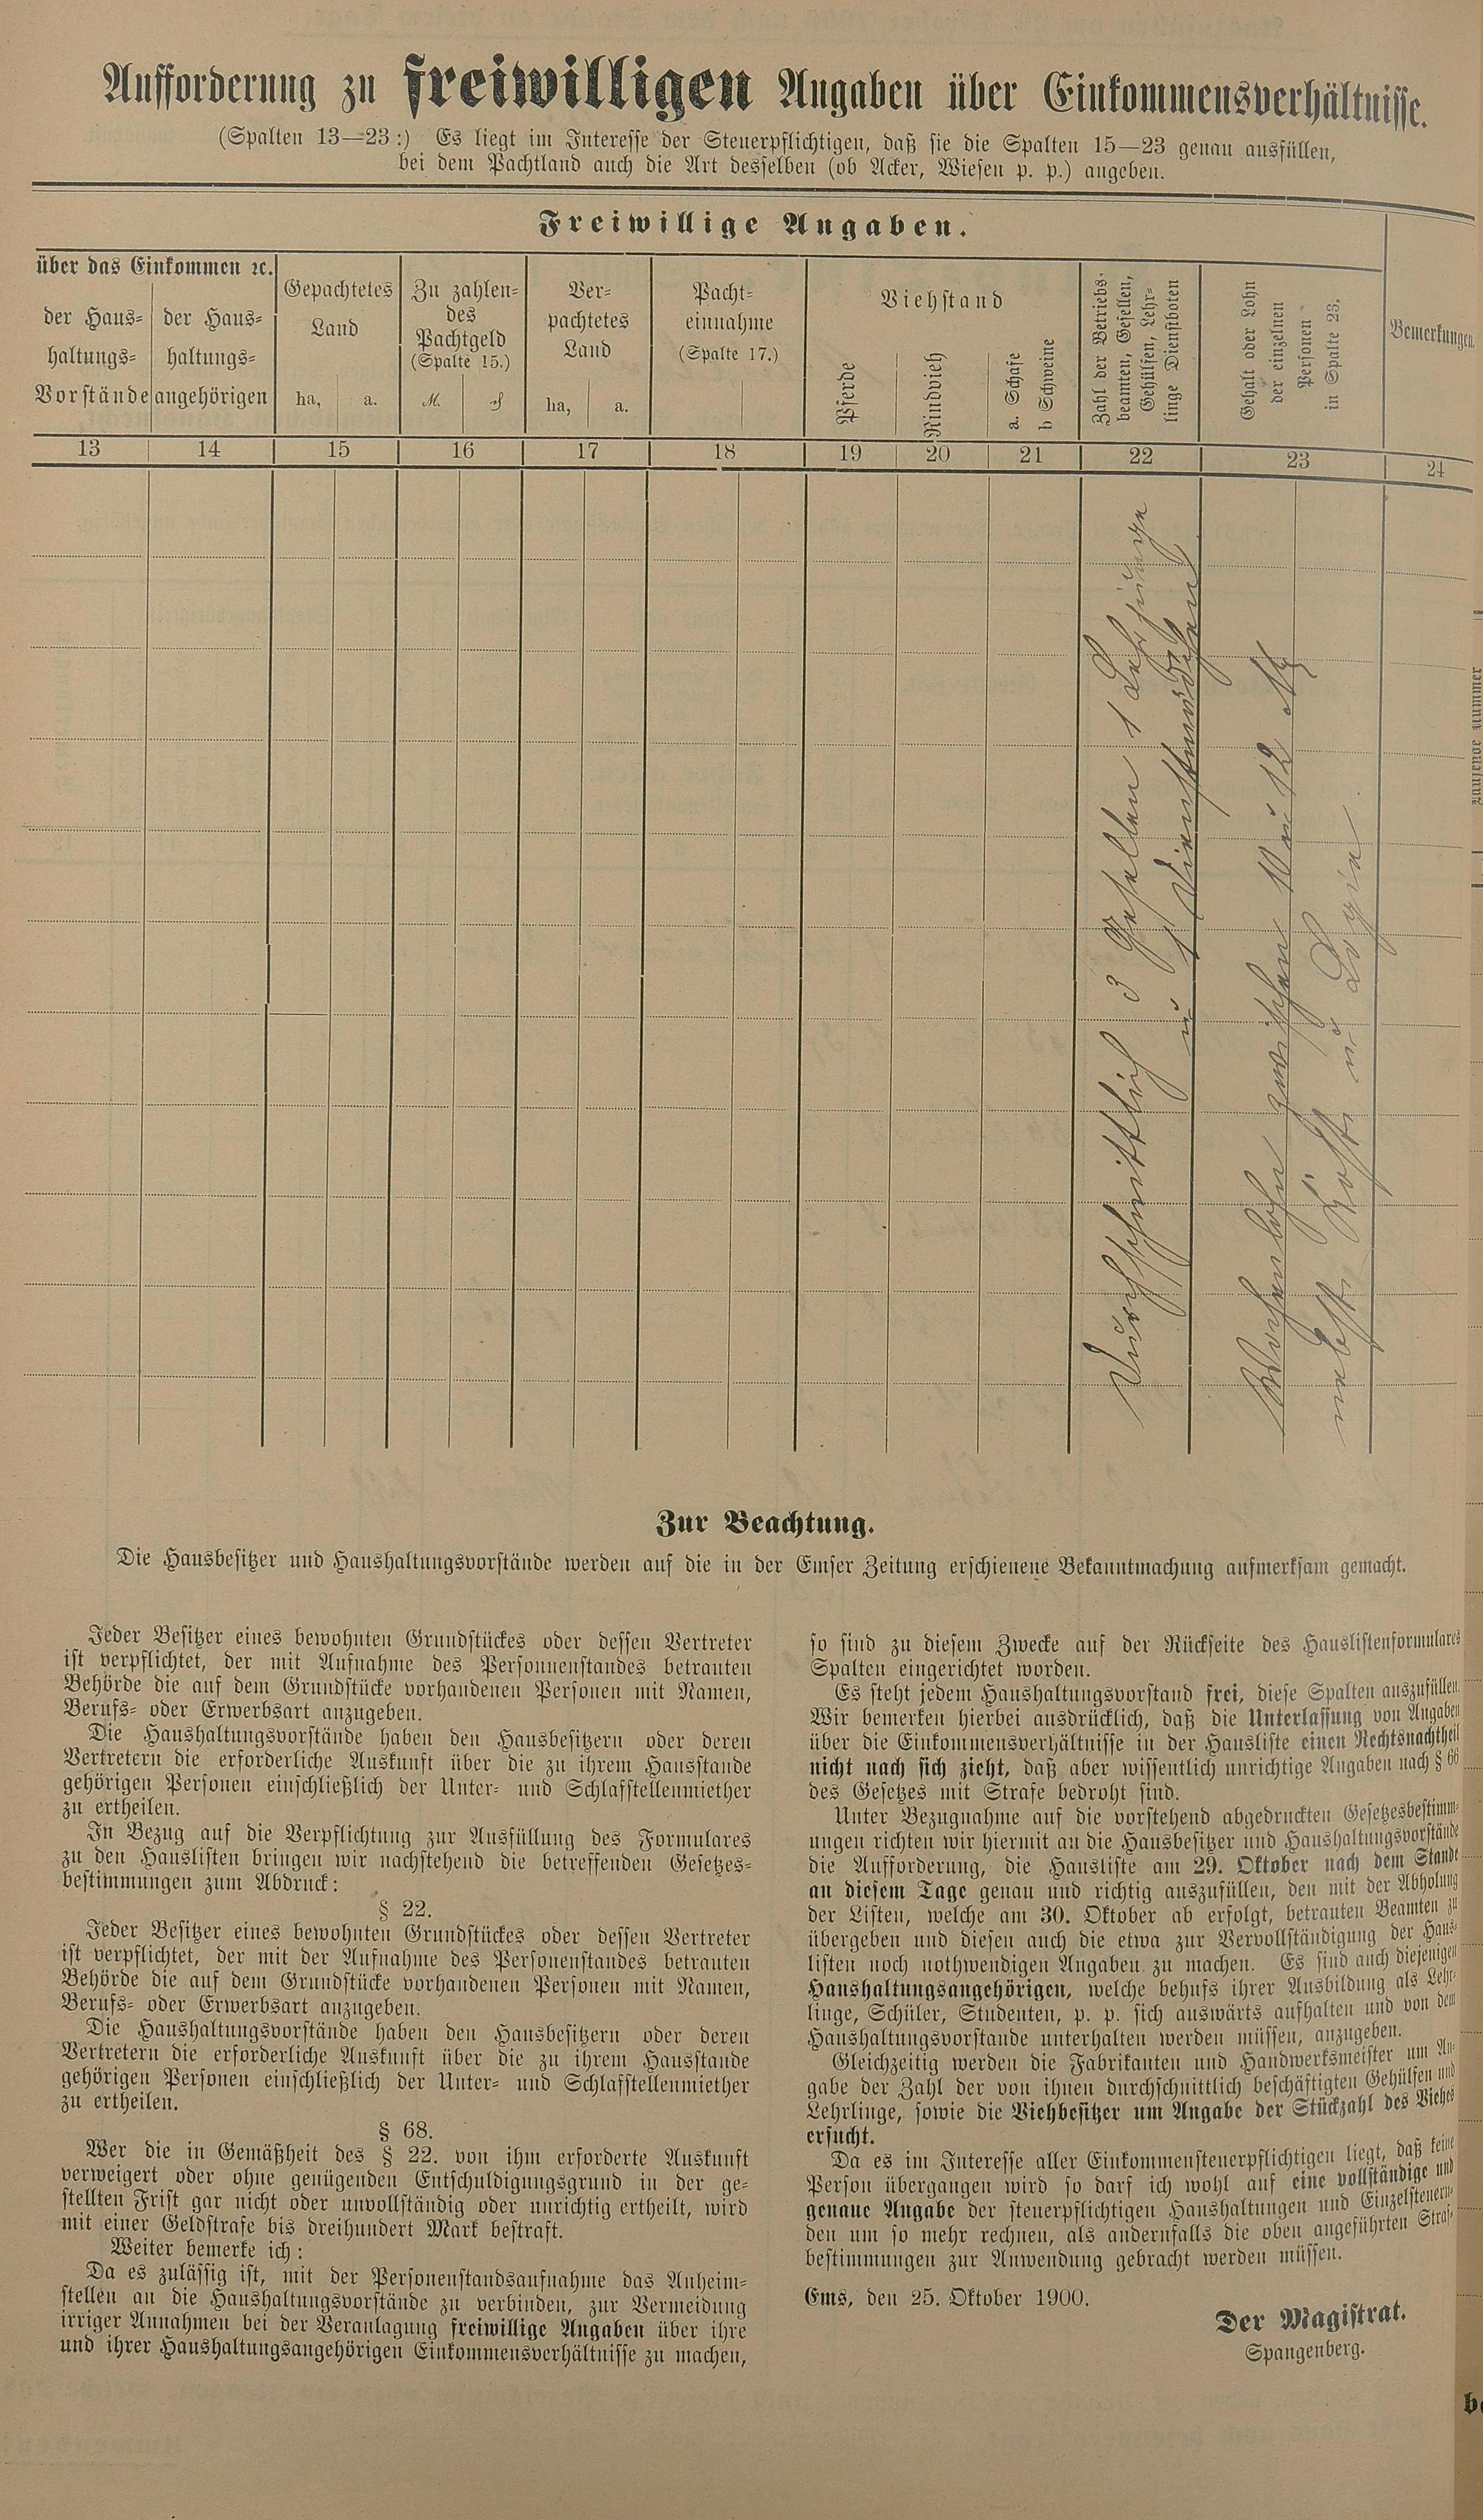 Aufforderung zu freiwilligen Angaben über Einkommensverhältnisse.
(Spalten 13—23:) Es liegt im Interesse der Steuerpflichtigen, daß sie die Spalten 15—23 genau ausfüllen,
bei dem Pachtland auch die Art desselben (ob Acker, Wiesen p. p.) angeben.
Freiwillige Angaben.
über das Einkommen ꝛc.
der Haus-
haltungs-
Vorstände
der Haus-
haltungs-
angehörigen
Gepachtetes
Land
ha, a.
Zu zahlen-
des
Pachtgeld
(Spalte 15.)
M. ₰
Ver-
pachtetes
Land
ha, a.
Pacht-
einnahme
(Spalte 17.)
Viehstand
Pferde
Rindvieh
a. Schafe
b Schweine
Zahl der Betriebs-
beamten, Gesellen,
Gehülfen, Lehr-
linge Dienstboten
Gehalt oder Lohn
der einzelnen
Personen
in Spalte 23.
Bemerkungen.
13 14 15 16 17 18 19 20 21 22 23 24
Durchschnittlich 3 Gesellen 1 Lehrjunge
u 1 Dienstmädchen
Wochenlohn zwischen 10 u 12 M
nebst Kost u Logie.
Zur Beachtung.
Die Hausbesitzer und Haushaltungsvorstände werden auf die in der Emser Zeitung erschienene Bekanntmachung aufmerksam gemacht.
Jeder Besitzer eines bewohnten Grundstückes oder dessen Vertreter
ist verpflichtet, der mit Aufnahme des Personnenstandes betrauten
Behörde die auf dem Grundstücke vorhandenen Personen mit Namen,
Berufs- oder Erwerbsart anzugeben.
Die Haushaltungsvorstände haben den Hausbesitzern oder deren
Vertretern die erforderliche Auskunft über die zu ihrem Hausstande
gehörigen Personen einschließlich der Unter- und Schlafstellenmiether
zu ertheilen.
In Bezug auf die Verpflichtung zur Ausfüllung des Formulares
zu den Hauslisten bringen wir nachstehend die betreffenden Gesetzes-
bestimmungen zum Abdruck:
§ 22.
Jeder Besitzer eines bewohnten Grundstückes oder dessen Vertreter
ist verpflichtet, der mit der Aufnahme des Personenstandes betrauten
Behörde die auf dem Grundstücke vorhandenen Personen mit Namen,
Berufs- oder Erwerbsart anzugeben.
Die Haushaltungsvorstände haben den Hausbesitzern oder deren
Vertretern die erforderliche Auskunft über die zu ihrem Hausstande
gehörigen Personen einschließlich der Unter- und Schlafstellenmiether
zu ertheilen.
§ 68.
Wer die in Gemäßheit des § 22. von ihm erforderte Auskunft
verweigert oder ohne genügenden Entschuldigungsgrund in der ge-
stellten Frist gar nicht oder unvollständig oder unrichtig ertheilt, wird
mit einer Geldstrafe bis dreihundert Mark bestraft.
Weiter bemerke ich:
Da es zulässig ist, mit der Personenstandsaufnahme das Anheim-
stellen an die Haushaltungsvorstände zu verbinden, zur Vermeidung
irriger Annahmen bei der Veranlagung freiwillige Angaben über ihre
und ihrer Haushaltungsangehörigen Einkommensverhältnisse zu machen,
so sind zu diesem Zwecke auf der Rückseite des Hauslistenformulares
Spalten eingerichtet worden.
Es steht jedem Haushaltungsvorstand frei, diese Spalten auszufüllen.
Wir bemerken hierbei ausdrücklich, daß die Unterlassung von Angaben
über die Einkommensverhältnisse in der Hausliste einen Rechtsnachtheil
nicht nach sich zieht, daß aber wissentlich unrichtige Angaben nach § 66
des Gesetzes mit Strafe bedroht sind.
Unter Bezugnahme auf die vorstehend abgedruckten Gesetzesbestimm-
ungen richten wir hiermit an die Hausbesitzer und Haushaltungsvorstände
die Aufforderung, die Hausliste am 29. Oktober nach dem Stande
an diesem Tage genau und richtig auszufüllen, den mit der Abholung
der Listen, welche am 30. Oktober ab erfolgt, betrauten Beamten zu
übergeben und diesen auch die etwa zur Vervollständigung der Haus-
listen noch nothwendigen Angaben zu machen. Es sind auch diejenigen
Haushaltungsangehörigen, welche behufs ihrer Ausbildung als Lehr-
linge, Schüler, Studenten, p. p. sich auswärts aufhalten und von dem
Haushaltungsvorstande unterhalten werden müssen, anzugeben.
Gleichzeitig werden die Fabrikanten und Handwerksmeister um An-
gabe der Zahl der von ihnen durchschnittlich beschäftigten Gehülfen und
Lehrlinge, sowie die Viehbesitzer um Angabe der Stückzahl des Viehes
ersucht.
Da es im Interesse aller Einkommensteuerpflichtigen liegt, daß keine
Person übergangen wird so darf ich wohl auf eine vollständige und
genaue Angabe der steuerpflichtigen Haushaltungen und Einzelsteuern-
den um so mehr rechnen, als andernfalls die oben angeführten Straf-
bestimmungen zur Anwendung gebracht werden müssen.
Ems, den 25. Oktober 1900.
Der Magistrat.
Spangenberg.